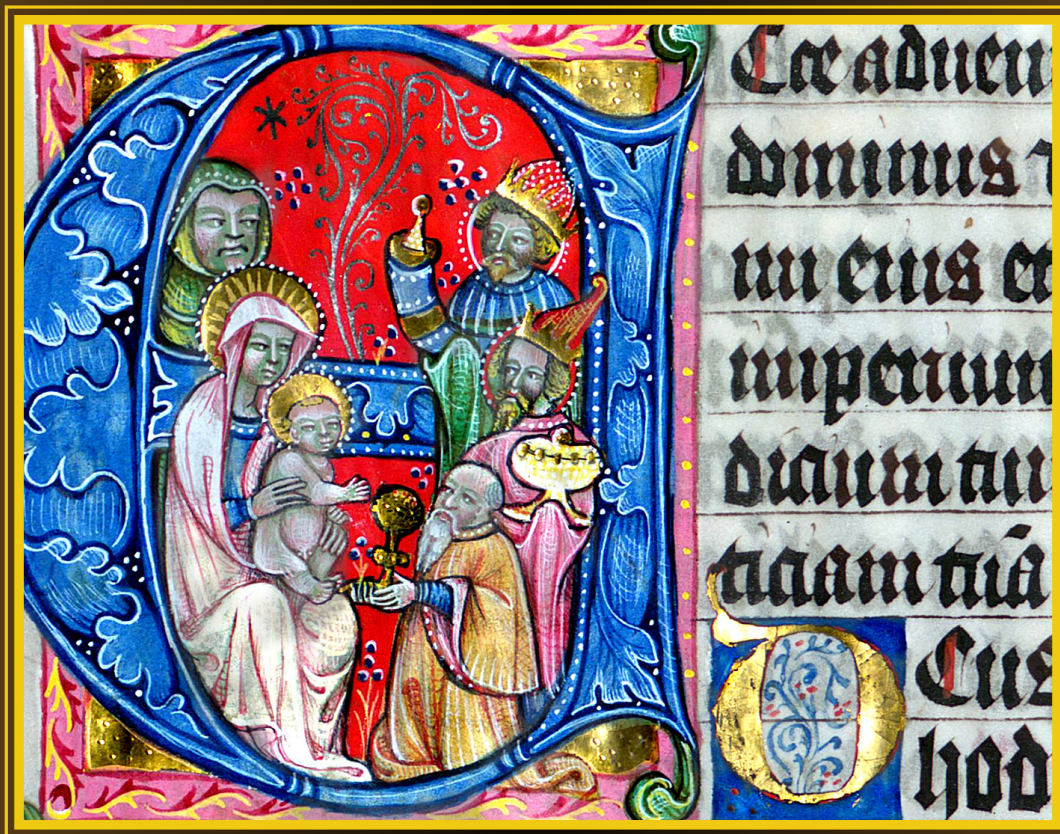 Ecce aduen
dominus
nu eius et
imperium
dicium tuu
ticiam tuā
DEus
hod